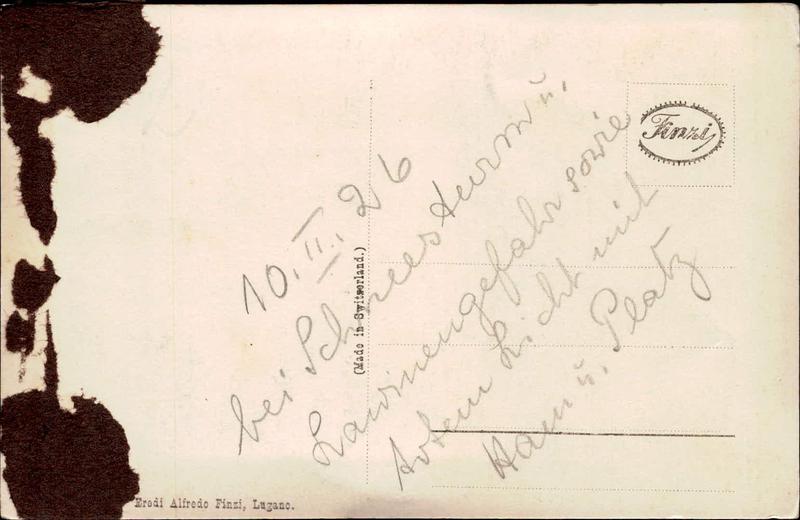 10. II. 26
bei Schneesturm u.
Lawinengefahr sowie
totem Licht mit
u. Platz
Finzi
(Made in Switzerland.)
Eredi Alfredo Finzi, Lugano.